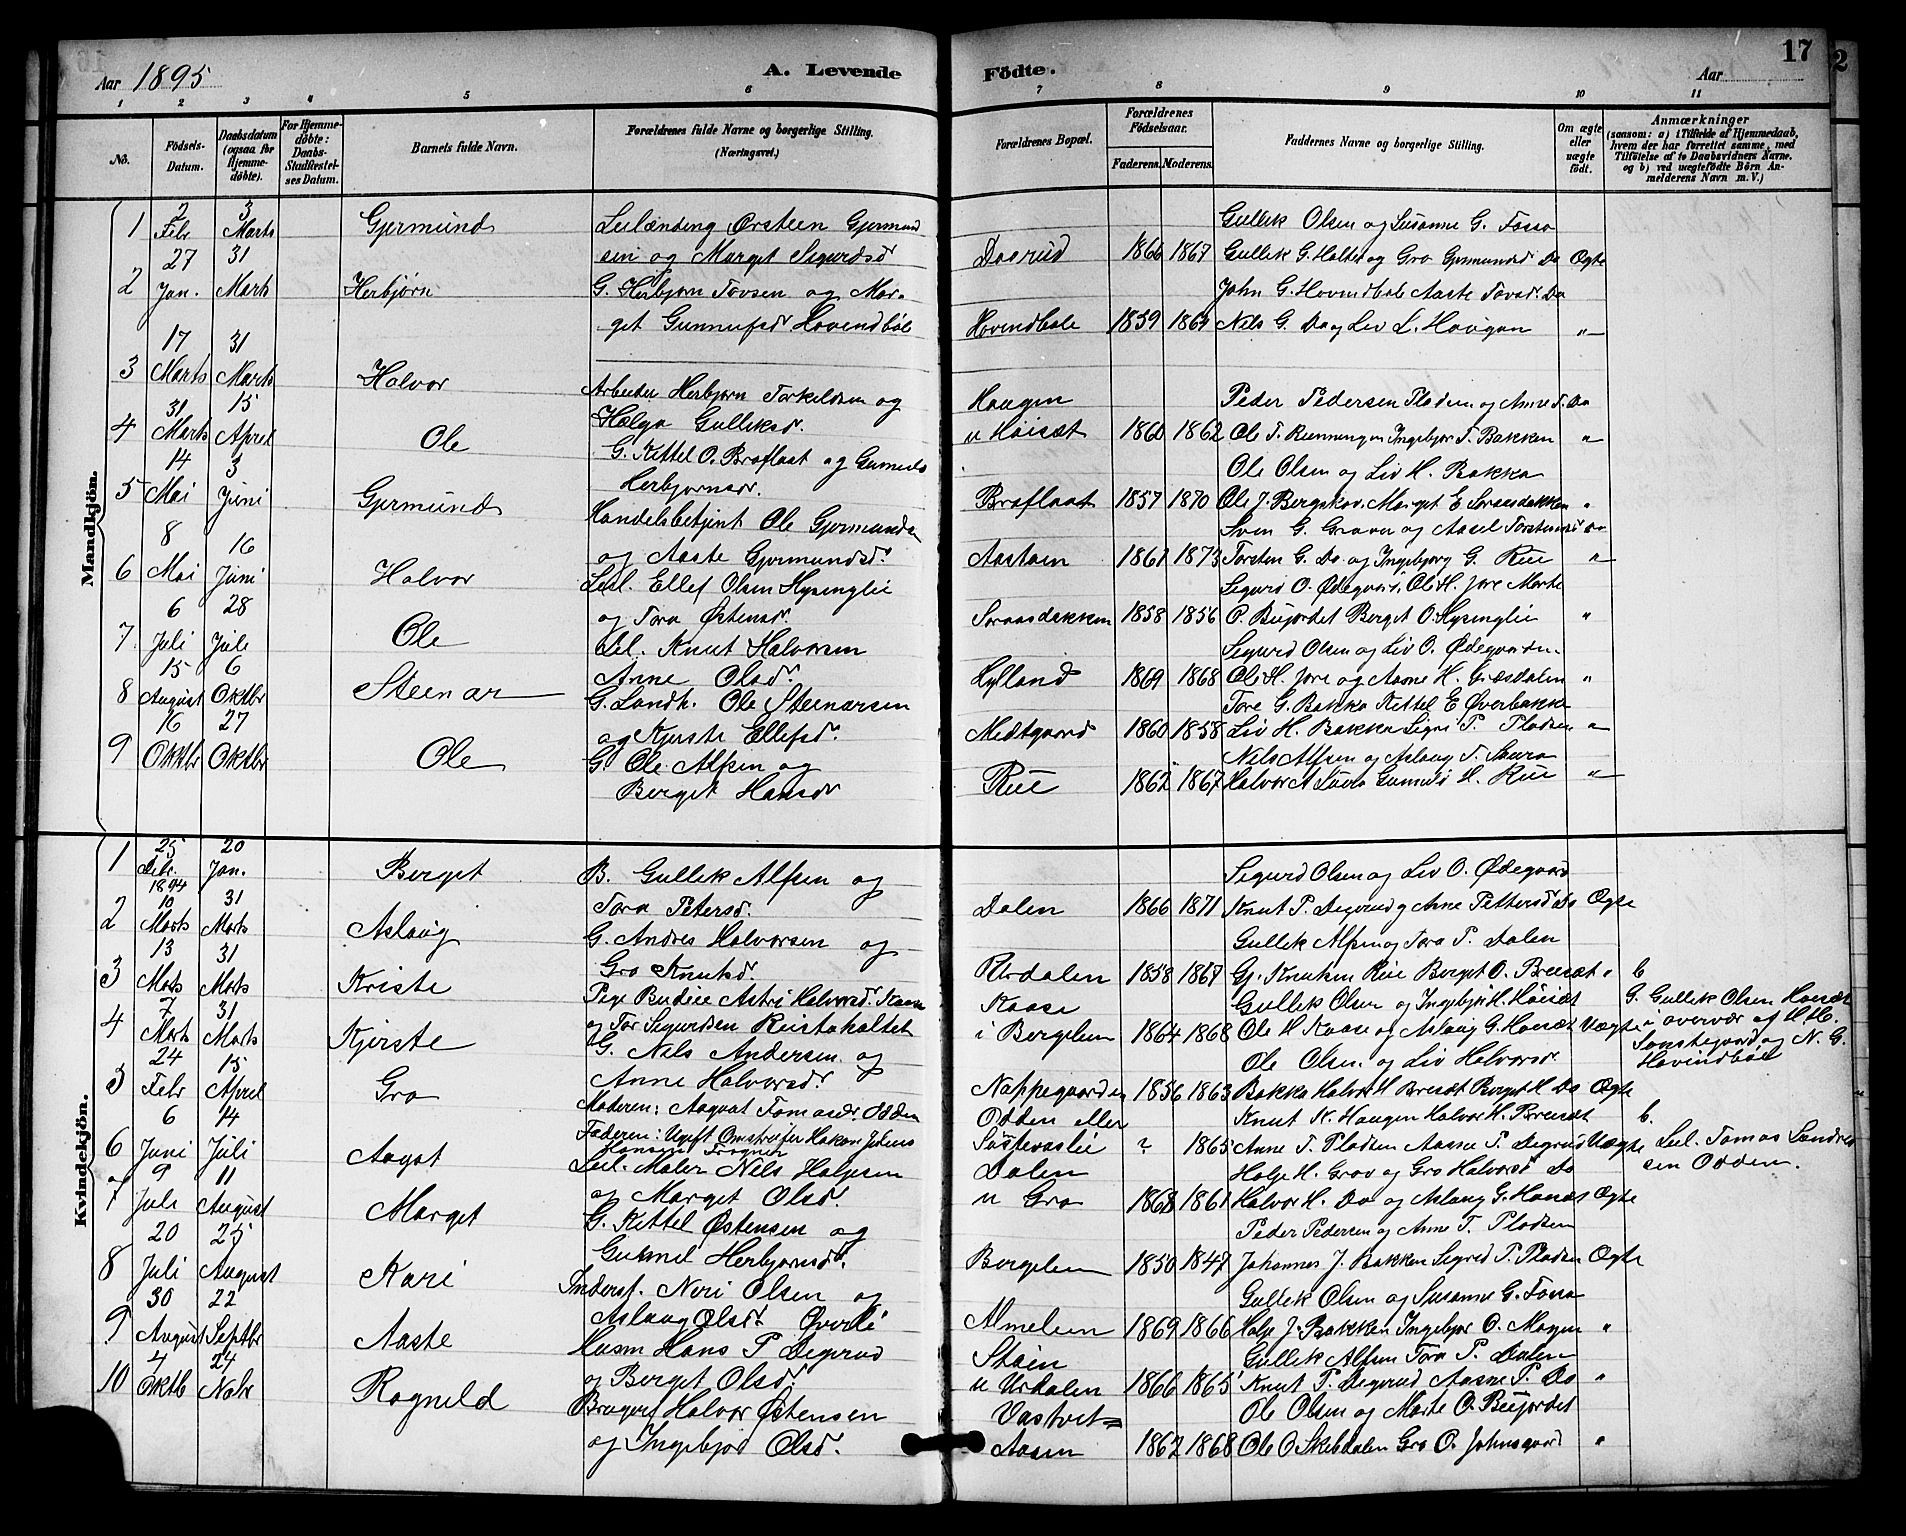 Aar 1895
A. Levende
Födte.
Aar
17
2
1 2 3 4 5 6 7 8 9 10 11
No.
Födsels-
Datum.
Daabsdatum
(ogsaa for
Hjemme-
döbte).
For Hjemme-
döbte:
Daabs-
Stadfæstel-
ses Datum.
Barnets fulde Navn.
Forældrenes fulde Navne og borgerlige Stilling.
(Næringsvei.)
Forældrenes Bopæl.
Forældrenes
Födselsaar.
Faderens. Moderens.
Faddernes Navne og borgerlige Stilling.
Om ægte
eller
uægte
födt.
Anmærkninger
(saasom: a) i Tilfælde af Hjemmedaab,
hvem der har forrettet samme, med
Tilföielse af to Daabsvidners Navne.
og b) ved uægtefödte Börn An-
melderens Navn m. V.)
Mandkjön.
1
2 Febr
3 Marts
Gjermund
Leilænding Østeen Gjermund
sen og Marget Sigurdsd
Daerud 1866 1867
Gullik Olsen og Susanne G. Fosso
Gullik G. Holtet og Gro Gjermundsd Do Ægte
2
27 Jan.
31 Marts
Herbjørn
G. Herbjørn Tovsen og Mar-
get Gunnufsdr Hovendbøle
Hovendbole 1859 1869
John G. Hovendbøle Aaste Tovsd. Do
Nils G. Do og Liv L. Haugan "
3
17 Marts
31 Marts
Halvor
Arbeider Herbjørn Torkildsen og
Helga Gulliksd.
Haugen
u Høisæt 1860 1862
Peder Pedersen Pladsen og Anne T. Do
Ole T. Rienningen Ingebjør T. Bakken "
4
31 Marts
15 April
Ole
G. Kittel O. Braflaat og Gunnild
Herbjornsdr.
Braflaat 1857 1870
Ole Olsen og Liv H. Bakka
Ole J. Bergskaas Marget E Soraasdekken "
5
14 Mai
3 Juni
Gjermund
Handelsbetjent Ole Gjermundsen
og Aaste Gjermundsd.
Aastaen 1861 1873
Sven G. Graver og Aasil Torstensd Do
Torsten G. Do og Ingebjorg G. Rue "
6
8 Mai
16 Juni
Halvor
Leil. Ellef Olsen Hysinglie
og Tora Østensd.
Soraasdekken 1858 1856
Sigurd O. Ødegaard, Ole H. Jore Marte
O. Bujordet Berget O. Hysinglie "
7.
6 Juli
28 Juli
Ole
Leil. Knut Halvorsen
Anne Olsd.
Lylland 1869 1868
Sigurd Olsen og Liv O. Ødegaarden
Ole H. Jore og Aasne H. Græsdalen "
8
15 August
6 Oktbr
Steenar
G. Landh. Ole Steenarsen
og Kjerste Ellefsd.
Medtgaard 1860 1858
Tore G. Bakka Kittel E Øverbakke
Liv H. Bakka Signe P. Pladsen "
9
16 Oktbr
27 Oktbr
Ole
G. Ole Alfsen og
Berget Hansdr
Rue 1862 1867
Nils Alfsen og Aslaug T. Saura
Halvor A Saura Gunnild H. Rue "
Kvindekjön.
1
25 Debr. 1894
20 Jan.
Berget
B. Gullik Alfsen og
Tora Petersd.
Dalen 1866 1871
Sigurd Olsen og Liv O. Ødegaard
Knut P. Degerud og Anne Pettersd Do Ægte
2
10 Marts
31 Marts
Aslaug
G. Andres Halvorsen og
Gro Knutsd.
Urdalen 1858 1867
Gullik Alfsen og Tora P. Dalen
Gj. Knutsen Rue Berget O. Bresæt "
3
13 Marts
31 Marts
Kriste
Pige Budeie Astri Halvorsd. Kaase
og Tor Sigurdsen Reistaholtet
Kaase
i Bergelien 1864 1868
Gullik Olsen og Ingebjør H. Høisæt
Ole H. Kaase og Aslaug G. Honsæt Uægte
b
G. Gullik Olsen Honsæt
i overvær af H H.
Tonstegaard og N. G.
Hovindbøle
4
7 Marts
31 Marts
Kjerste
G. Nils Andersen og
Anne Halvorsd.
Nappegaarden 1856 1863
Ole Olsen og Liv Halvorsdr
Bakka Halvor H Bresæt Berget H Do Ægte
5
24 Febr
15 April
Gro
Moderen: Aagot Tomasdr Odden
Faderen: Ugift Omstreifer Hakon Julius
Odden eller
Søstevaslie ? 1865
Knut K. Haugen Halvor H. Bresæt
Anne T. Pladsen Aasne P. Degerud Uægte
b.
Leil. Tomas Sondre
sen Odden.
6
6 Juni
14 Juli
Aagot
Leil. Maler Nils Holjesen
og Marget Olsd.
Dalen
u Gro 1868 1861
Holje H. Grov og Gro Halvorsd Do
Halvor H. Do og Aslaug G. Honæs Ægte
7
9 Juli
11 August
Marget
G. Kittel Østensen og
Gunnil Herbjornsd.
Bergelien 1850 1847
Peder Pedersen og Anne T. Pladsen
Johannes J. Bakken Sigrid P. Pladsen Ægte
8
20 Juli
25 August
Kari
Inderst. Neri Olsen og
Aslaug Olsd. Øverlie
Almelien 1869 1866
Gullik Olsen og Susanne G. Fossa
Holje J. Bakken Ingebjor O. Mogen "
9
30 August
22 Septbr
Aaste
Husm Hans P Degerud
og Berget Olsd.
Støen
u Urdalen 1866 1865
Gullik Alfsen Tora P. Dalen
Knut P. Degerud Aasne P. Do "
10
4 Oktb
24 Nobr
Rogneld
Bruger Halvor Østensen
og Ingebjør Olsd.
Vastvet=
Aasen 1862 1868
Ole Olsen og Marte O. Bujordet
Ole O Skibdalen Gro O. Johnsgaard "